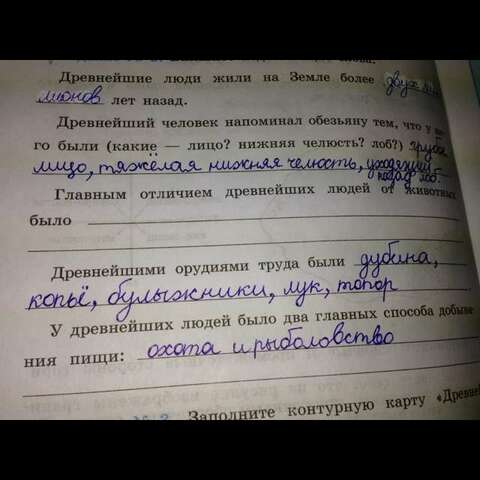 Древнейшие люди жили на Земле более двух мил
лионов лет назад.
Древнейший человек напоминал обезьяну тем, что у не
го были (какие — лицо? нижняя челюсть? лоб?) грубое
лицо, тяжёлая нижняя челюсть, уходящий
назад лоб.
Главным отличием древнейших людей от животных
было
Древнейшими орудиями труда были дубина,
копьё, булыжники, лук, топор
У древнейших людей было два главных способа добыва
ния пищи: охота и рыболовство
Заполните контурную карту «Древней